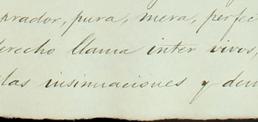 prador, pura, mera, perfec
derecho llama inter vivos,
las insinuaciones y dem